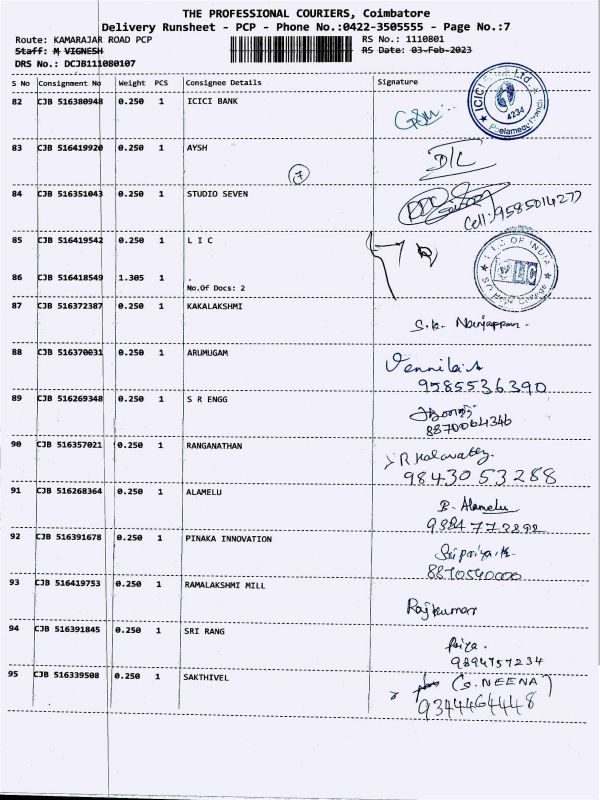 THE PROFESSIONAL COURIERS, Coimbatore
Delivery Runsheet - PCP - Phone No.:0422-3505555 - Page No.:7
Route: KAMARAJAR ROAD PCP RS No.: 1110801
Staff: M VIGNESH RS Date: 03-Feb-2023
DRS No.: DCJB111080107
S No Consignment No Weight PCS Consignee Details Signature
82 CJB 516380948 0.250 1 ICICI BANK
ICICI Ltd. 4234
83 CJB 516419920 0.250 1 AYSH D/L
7
84 CJB 516351043 0.250 1 STUDIO SEVEN
Cell: 9585014277
85 CJB 516419542 0.250 1 L I C
L I C OF INDIA
86 CJB 516418549 1.305 1 .
No.Of Docs: 2
87 CJB 516372387 0.250 1 KAKALAKSHMI
S.K. Nanjappan
88 CJB 516370031 0.250 1 ARUMUGAM
Vennila
9585536390
89 CJB 516269348 0.250 1 S R ENGG
8870064346
90 CJB 516357021 0.250 1 RANGANATHAN
98430 53288
91 CJB 516268364 0.250 1 ALAMELU
B. Alamelu
92 CJB 516391678 0.250 1 PINAKA INNOVATION
Sripriya
8870540000
93 CJB 516419753 0.250 1 RAMALAKSHMI MILL
Rajkumar
94 CJB 516391845 0.250 1 SRI RANG
9894757234
95 CJB 516339508 0.250 1 SAKTHIVEL
(S. NEENA)
9344464448